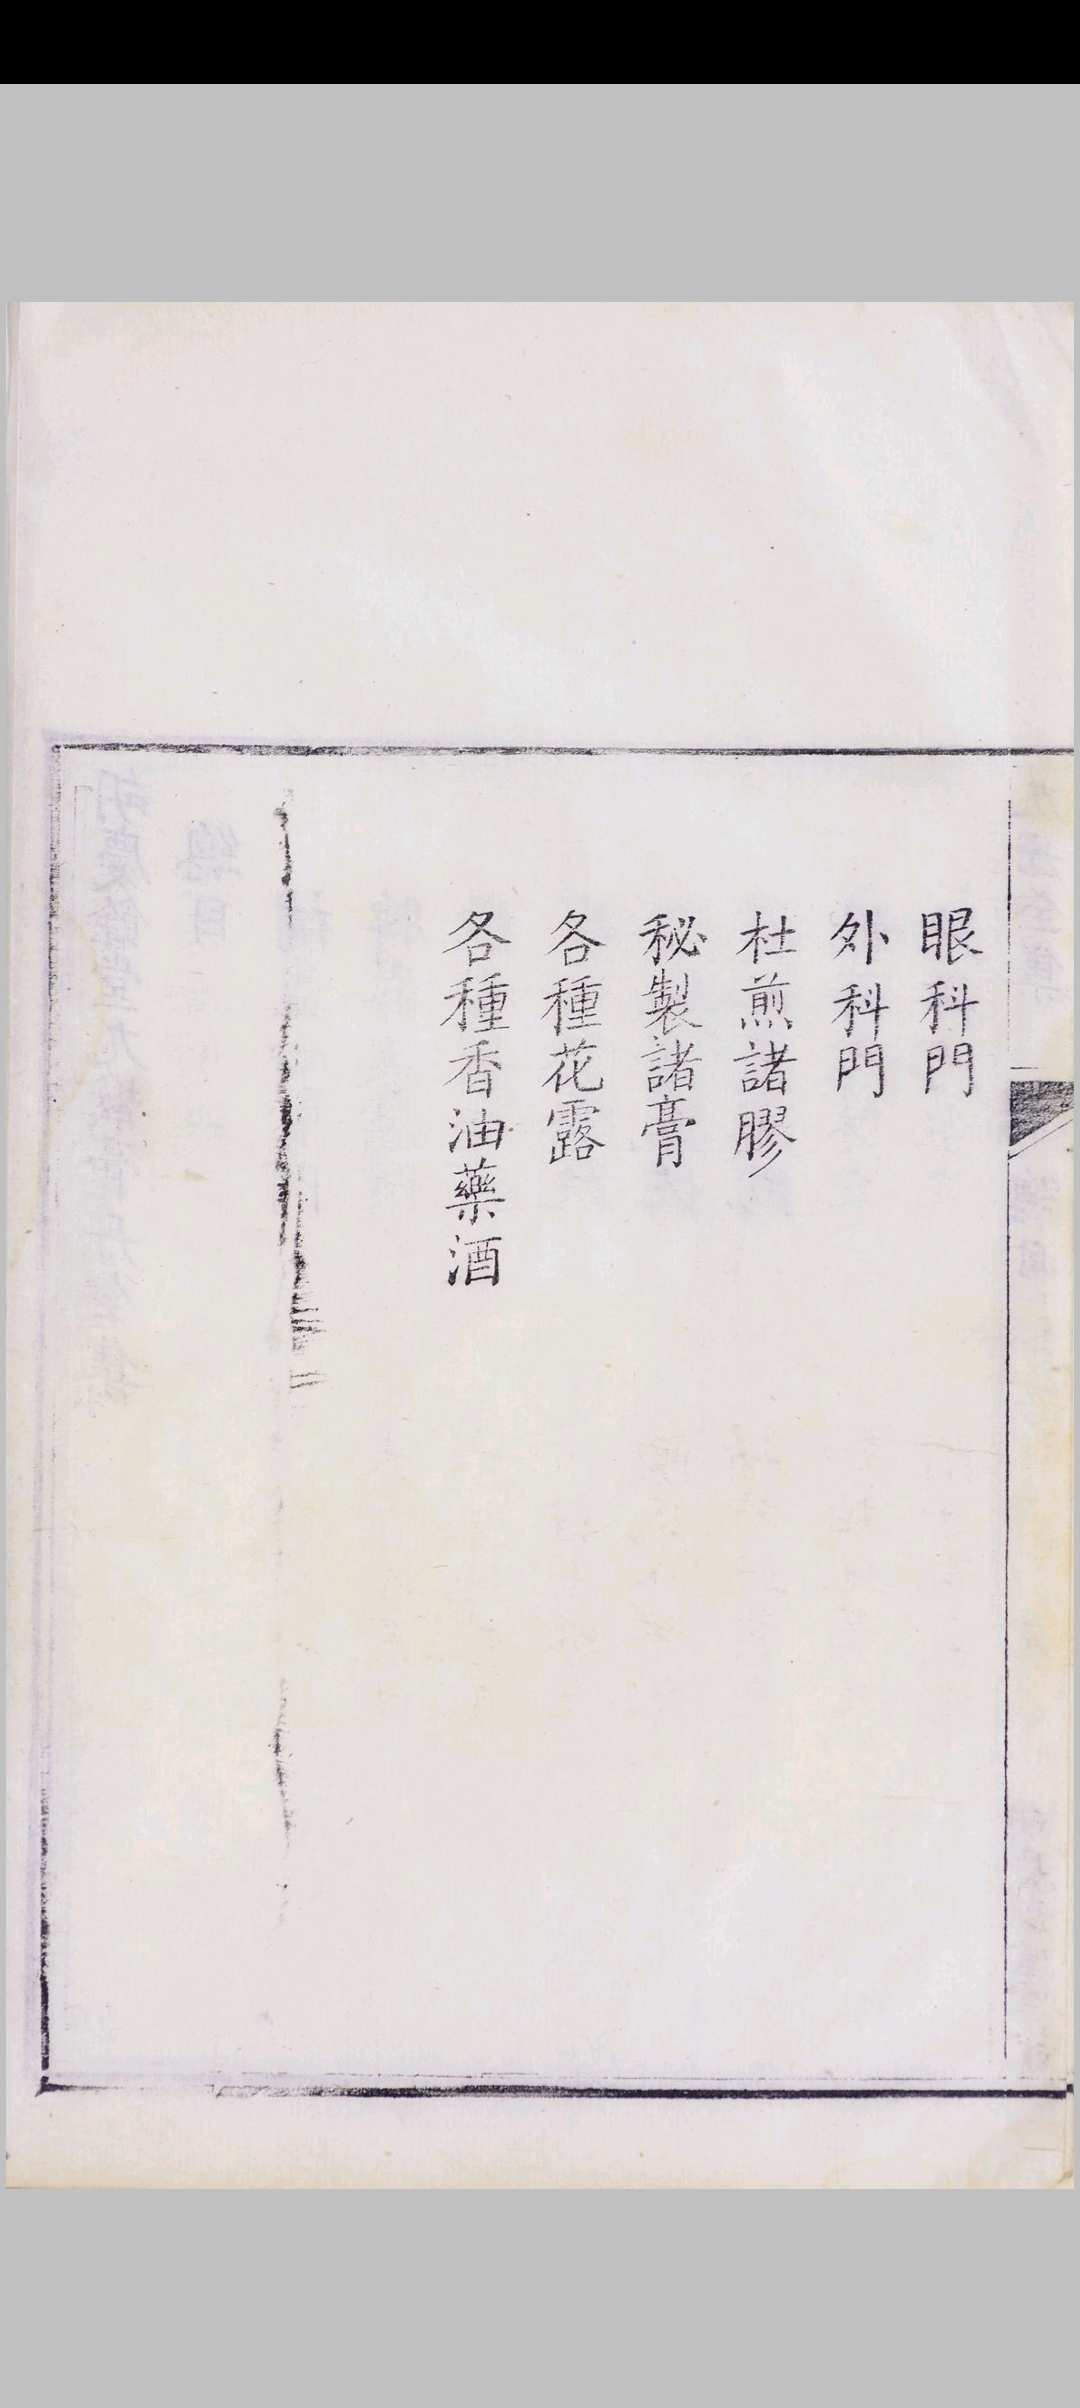 眼科門
外科門
杜煎諸膠
秘製諸膏
各種花露
各種香油藥酒